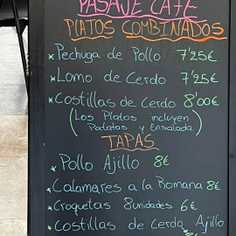 PASAJE CAFE
PLATOS COMBINADOS
* Pechuga de Pollo 7'25€
* Lomo de Cerdo 7'25€
* Costillas de Cerdo 8'00€
(Los Platos incluyen
Patatas y Ensalada)
TAPAS
* Pollo Ajillo 8€
* Calamares a la Romana 8€
* Croquetas 8unidades 6€
* Costillas de Cerdo Ajillo
8€